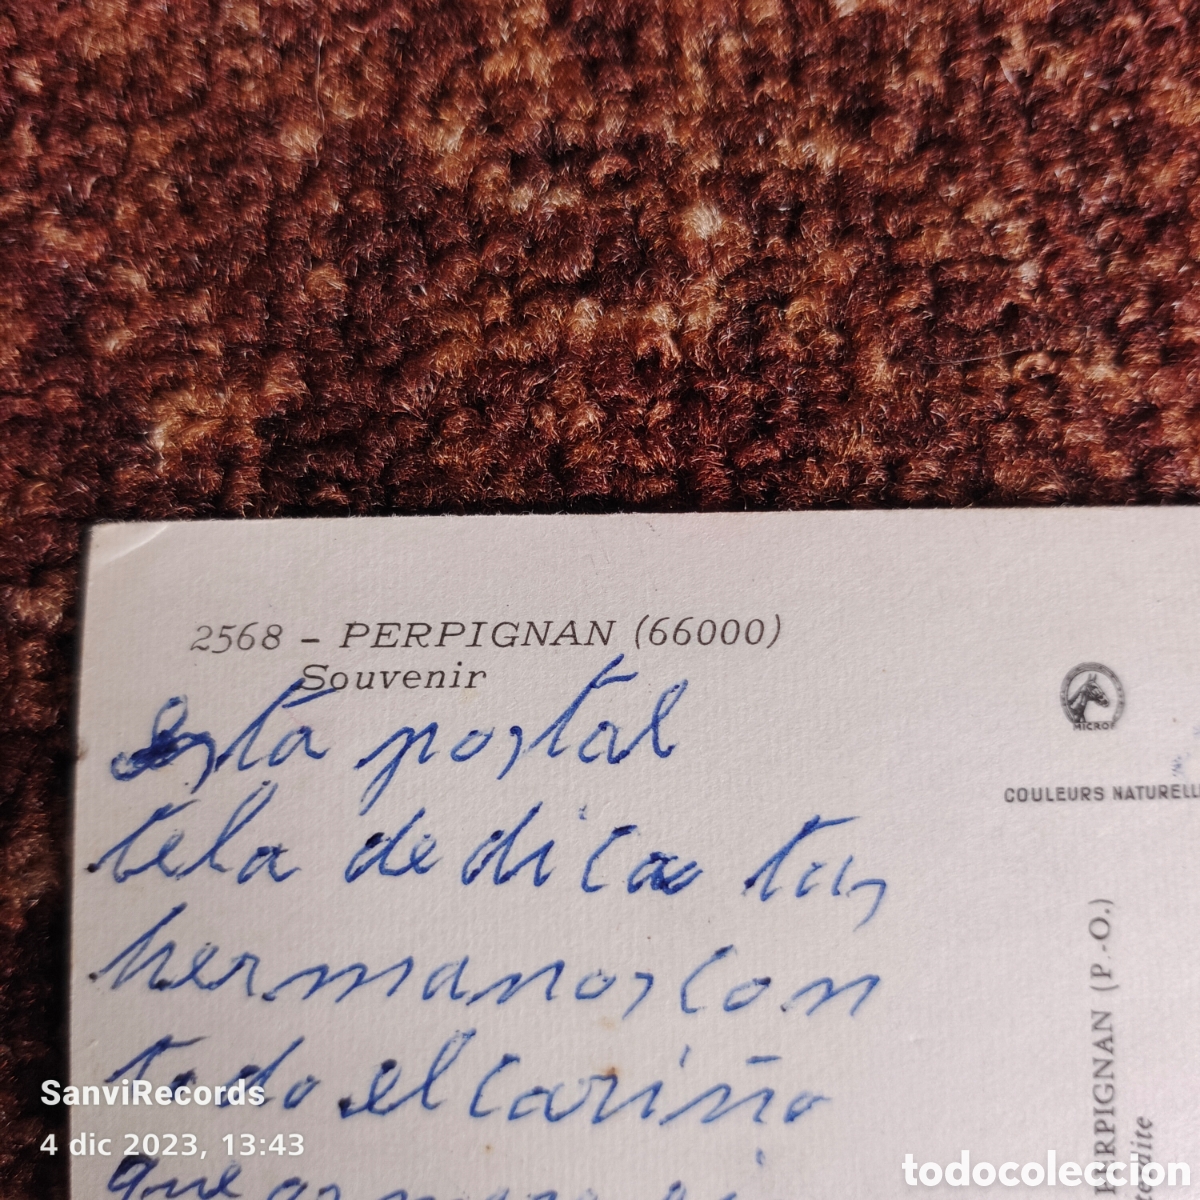 2568 - PERPIGNAN (66000)
Souvenir
Esta postal
tela dedica tus
hermanos con
todo el cariño
que
MICRO
COULEURS NATURELL
ERPIGNAN (P.-O.)
dite
SanviRecords
4 dic 2023, 13:43
todocoleccion